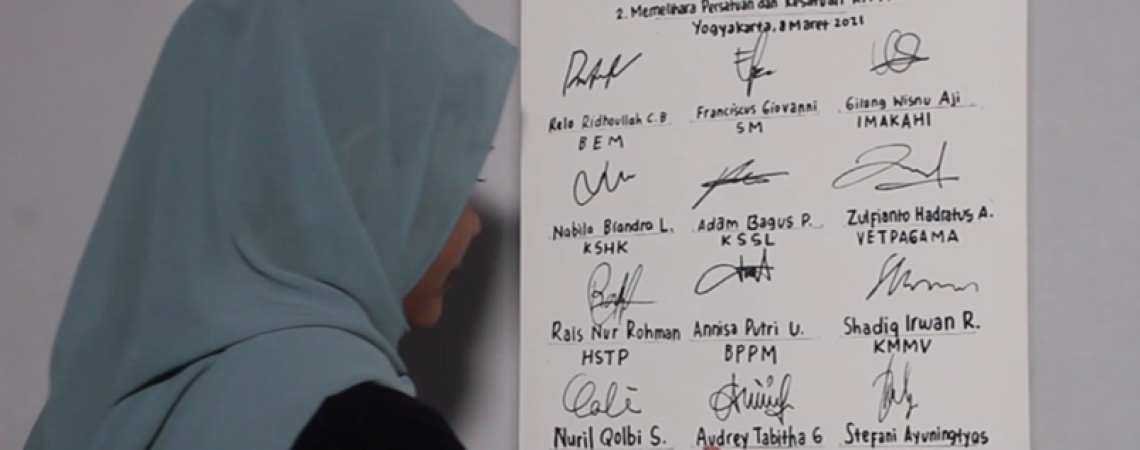 2. Memelihara Persatuan dan Kesatuan
Yogyakarta, 8 Maret 2021
Relo Ridhoullah C.B Franciscus Giovanni Gilang Wisnu Aji
BEM SM IMAKAHI
Nabila Briandra L. Adam Bagus P. Zulfianto Hadratus A.
KSHK KSSL VETPAGAMA
Rais Nur Rohman Annisa Putri U. Shadiq Irwan R.
HSTP BPPM KMMV
Nuril Qolbi S. Audrey Tabitha G Stefani Ayuningtyas